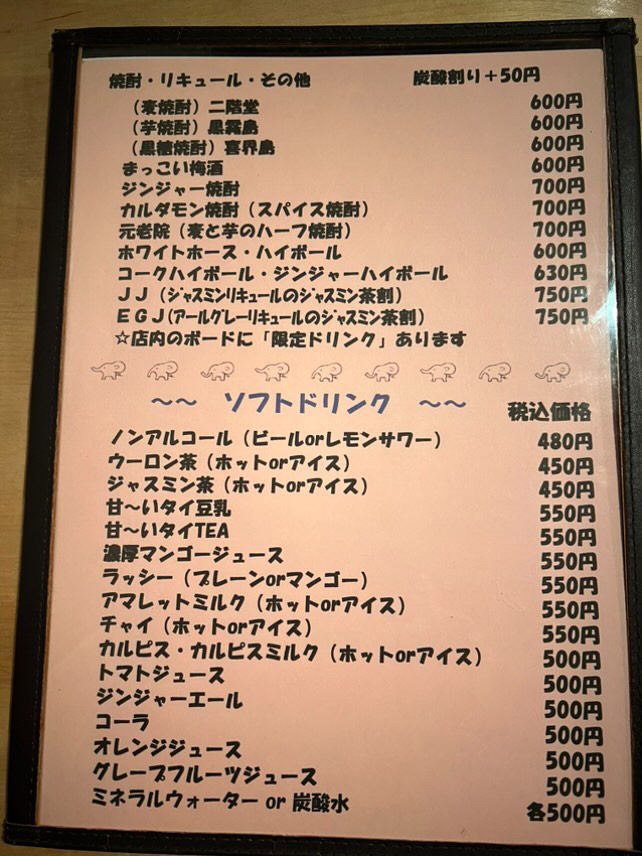 焼酎・リキュール・その他 炭酸割り＋50円
（麦焼酎）二階堂 600円
（芋焼酎）黒霧島 600円
（黒糖焼酎）喜界島 600円
まっこい梅酒 600円
ジンジャー焼酎 700円
カルダモン焼酎（スパイス焼酎） 700円
元老院（麦と芋のハーフ焼酎） 700円
ホワイトホース・ハイボール 600円
コークハイボール・ジンジャーハイボール 630円
ＪＪ（ｼﾞｬｽﾐﾝﾘｷｭｰﾙのｼﾞｬｽﾐﾝ茶割） 750円
ＥＧＪ（ｱｰﾙｸﾞﾚｰﾘｷｭｰﾙのｼﾞｬｽﾐﾝ茶割） 750円
☆店内のボードに「限定ドリンク」あります
～～ ソフトドリンク ～～ 税込価格
ノンアルコール（ビールorレモンサワー） 480円
ウーロン茶（ホットorアイス） 450円
ジャスミン茶（ホットorアイス） 450円
甘～いタイ豆乳 550円
甘～いタイTEA 550円
濃厚マンゴージュース 550円
ラッシー（プレーンorマンゴー） 550円
アマレットミルク（ホットorアイス） 550円
チャイ（ホットorアイス） 550円
カルピス・カルピスミルク（ホットorアイス） 500円
トマトジュース 500円
ジンジャーエール 500円
コーラ 500円
オレンジジュース 500円
グレープフルーツジュース 500円
ミネラルウォーター or 炭酸水 各500円